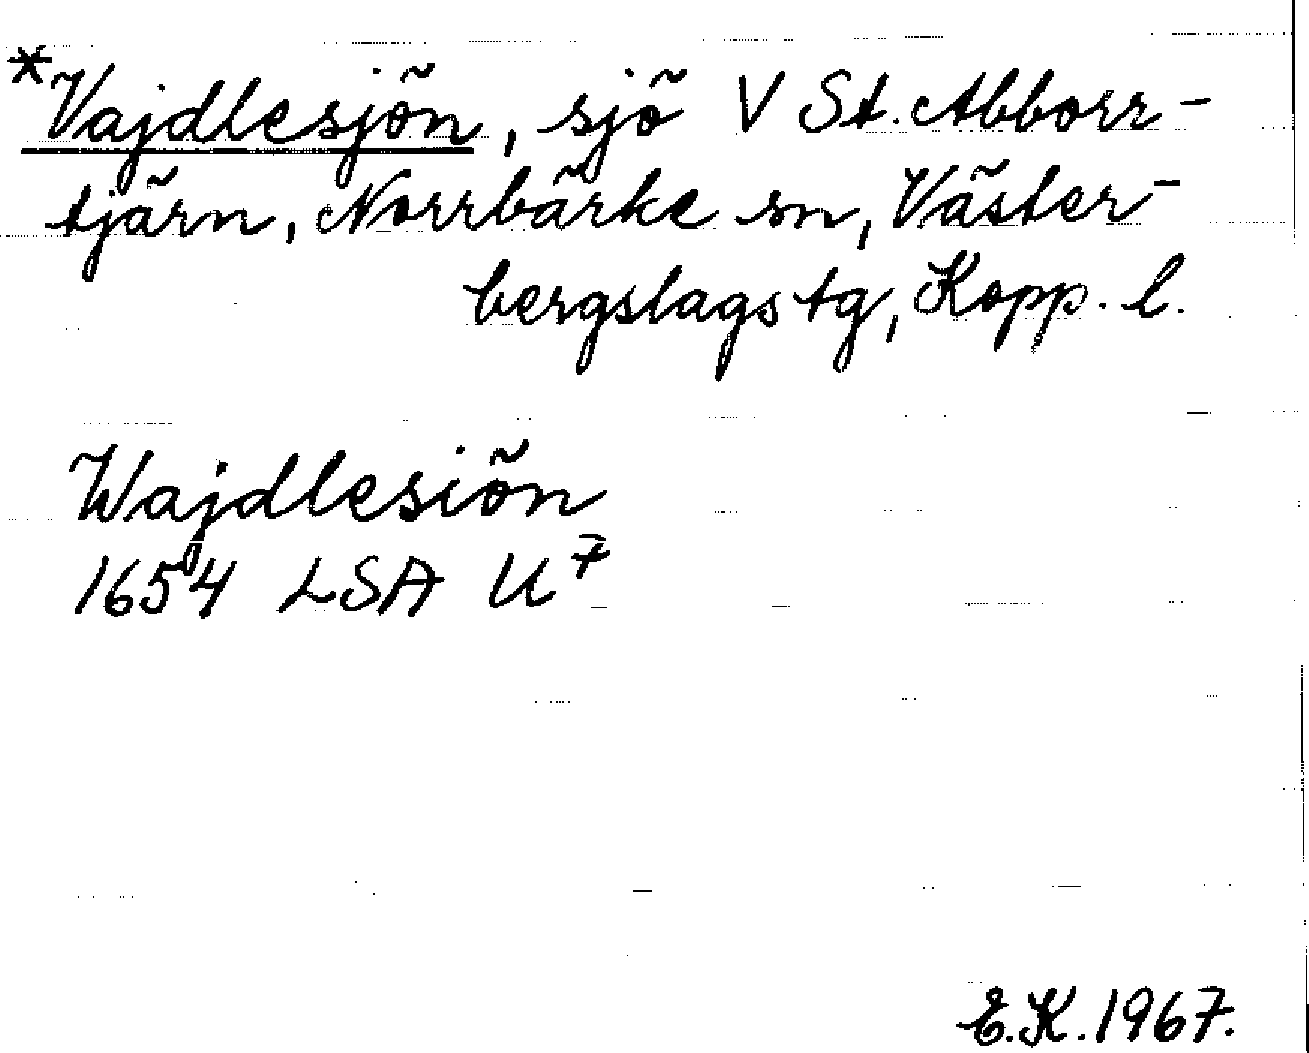 *Vajdlesjön, sjö V St. Abborr-
tjärn, Norrbärke sn, Väster-
bergslags tg, Kopp. l.
Wajdlesiön
1654 LSA U⁷
E.K. 1967.